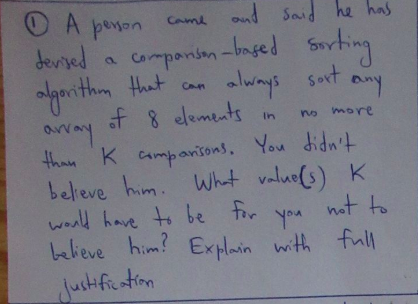 ① A person came and said he has
devised a comparison-based sorting
algorithm that can always sort any
array of 8 elements in no more
than K comparisons. You didn't
believe him. What value(s) K
would have to be for you not to
believe him? Explain with full
justification